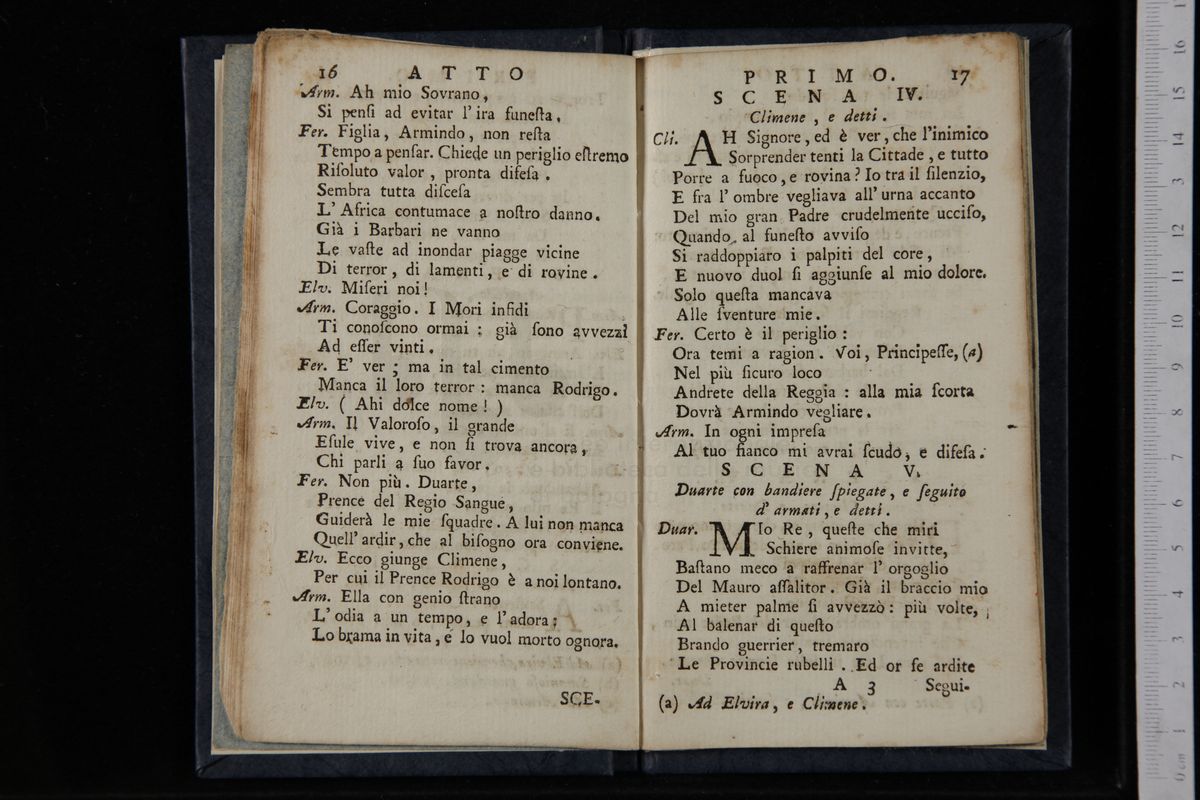 16 ATTO
Arm. Ah mio Sovrano,
Si penſi ad evitar l'ira funeſta.
Fer. Figlia, Armindo, non reſta
Tempo a penſar. Chiede un periglio eſtremo
Riſoluto valor, pronta difeſa.
Sembra tutta diſceſa
L'Africa contumace a noſtro danno.
Già i Barbari ne vanno
Le vaſte ad inondar piagge vicine
Di terror, di lamenti, e di rovine.
Elv. Miſeri noi!
Arm. Coraggio. I Mori infidi
Ti conoſcono ormai: già ſono avvezzi
Ad eſſer vinti.
Fer. E' ver; ma in tal cimento
Manca il loro terror: manca Rodrigo.
Elv. (Ahi dolce nome!)
Arm. Il Valoroſo, il grande
Eſule vive, e non ſi trova ancora,
Chi parli a ſuo favor.
Fer. Non più. Duarte,
Prence del Regio Sangue,
Guiderà le mie ſquadre. A lui non manca
Quell'ardir, che al biſogno ora conviene.
Elv. Ecco giunge Climene,
Per cui il Prence Rodrigo è a noi lontano.
Arm. Ella con genio ſtrano
L'odia a un tempo, e l'adora:
Lo brama in vita, e lo vuol morto ognora.
SCE-
PRIMO. 17
SCENA IV.
Climene, e detti.
Cli. AH Signore, ed è ver, che l'inimico
Sorprender tenti la Cittade, e tutto
Porre a fuoco, e rovina? Io tra il ſilenzio,
E fra l'ombre vegliava all'urna accanto
Del mio gran Padre crudelmente ucciſo,
Quando al funeſto avviſo
Si raddoppiaro i palpiti del core,
E nuovo duol ſi aggiunſe al mio dolore.
Solo queſta mancava
Alle ſventure mie.
Fer. Certo è il periglio:
Ora temi a ragion. Voi, Principeſſe, (a)
Nel più ſicuro loco
Andrete della Reggia: alla mia ſcorta
Dovrà Armindo vegliare.
Arm. In ogni impreſa
Al tuo fianco mi avrai ſcudo, e difeſa.
SCENA V.
Duarte con bandiere ſpiegate, e ſeguito
d'armati, e detti.
Duar. MIo Re, queſte che miri
Schiere animoſe invitte,
Baſtano meco a raffrenar l'orgoglio
Del Mauro aſſalitor. Già il braccio mio
A mieter palme ſi avvezzò: più volte,
Al balenar di queſto
Brando guerrier, tremaro
Le Provincie rubelli. Ed or ſe ardite
A 3 Segui-
(a) Ad Elvira, e Climene.
0 cm 1 2 3 4 5 6 7 8 9 10 11 12 13 14 15 16 17